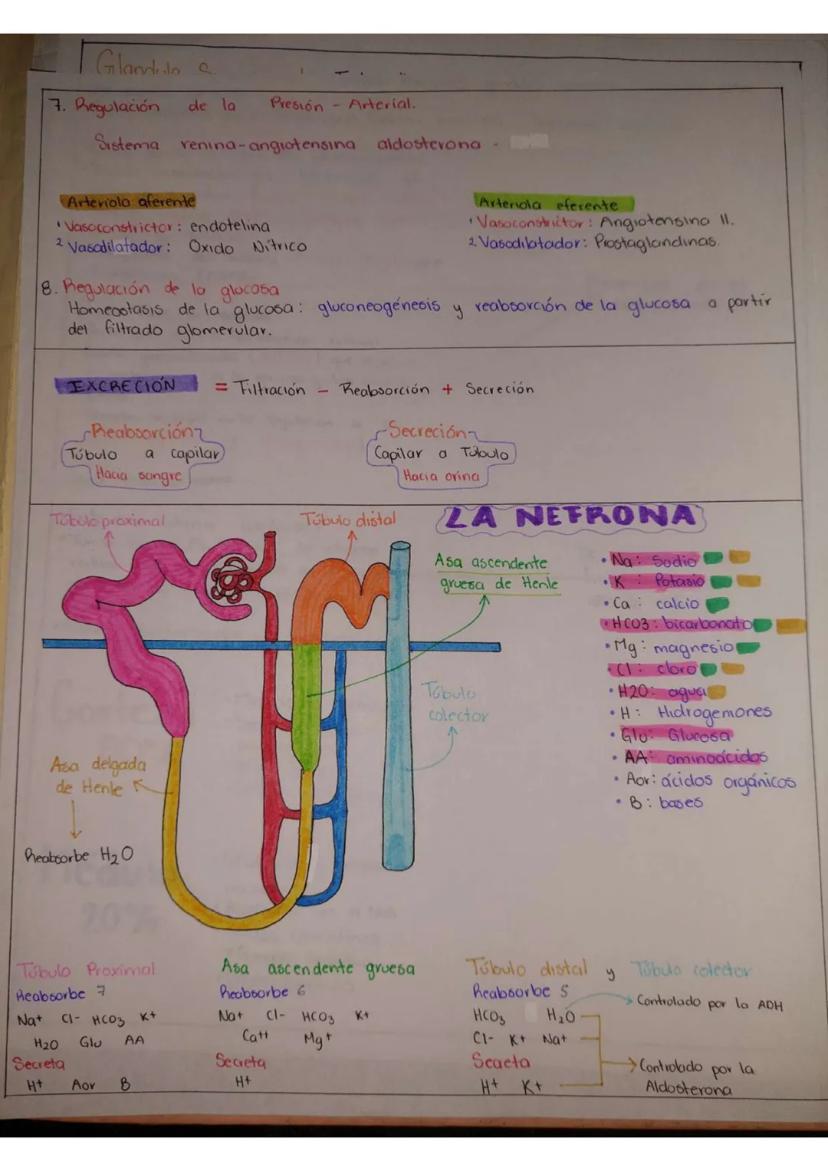 Glandula s
7. Regulación de la Presión - Arterial.
Sistema renina-angiotensina aldosterona -
Arteriola aferente
1 Vasoconstrictor: endotelina
2 Vasodilatador: Oxido Nítrico
Arteriola eferente
1 Vasoconstrictor: Angiotensina II.
2. Vasodilatador: Prostaglandinas.
8. Regulación de la glucosa
Homeostasis de la glucosa: gluconeogéneois y reabsorción de la glucosa a partir
del filtrado glomerular.
EXCRECIÓN = Filtración - Reabsorción + Secreción
Reabsorción
Túbulo a capilar
Hacia sangre
Secreción
Capilar a Túbulo
Hacia orina
Túbulo proximal
Túbulo distal
LA NEFRONA
Asa ascendente
gruesa de Henle
Túbulo
colector
Asa delgada
de Henle
Reabsorbe H2O
• Na: Sodio
• K : Potasio
• Ca : calcio
• HCO3: bicarbonato
• Mg: magnesio
• Cl: cloro
• H2O: agua
• H: Hidrogemones
• Glu: Glucosa
• AA: aminoácidos
• Aor: ácidos orgánicos
• B: bases
Túbulo Proximal
Reabsorbe 7
Na+ Cl- HCO3 K+
H2O Glu AA
Secreta
H+ Aor B
Asa ascendente gruesa
Reabsorbe 6
Na+ Cl- HCO3 K+
Ca++ Mg+
Secreta
H+
Túbulo distal y Túbulo colector
Reabsorbe 5
HCO3 H2O
Cl- K+ Na+
Secreta
H+ K+
Controlado por la ADH
Controlado por la
Aldosterona